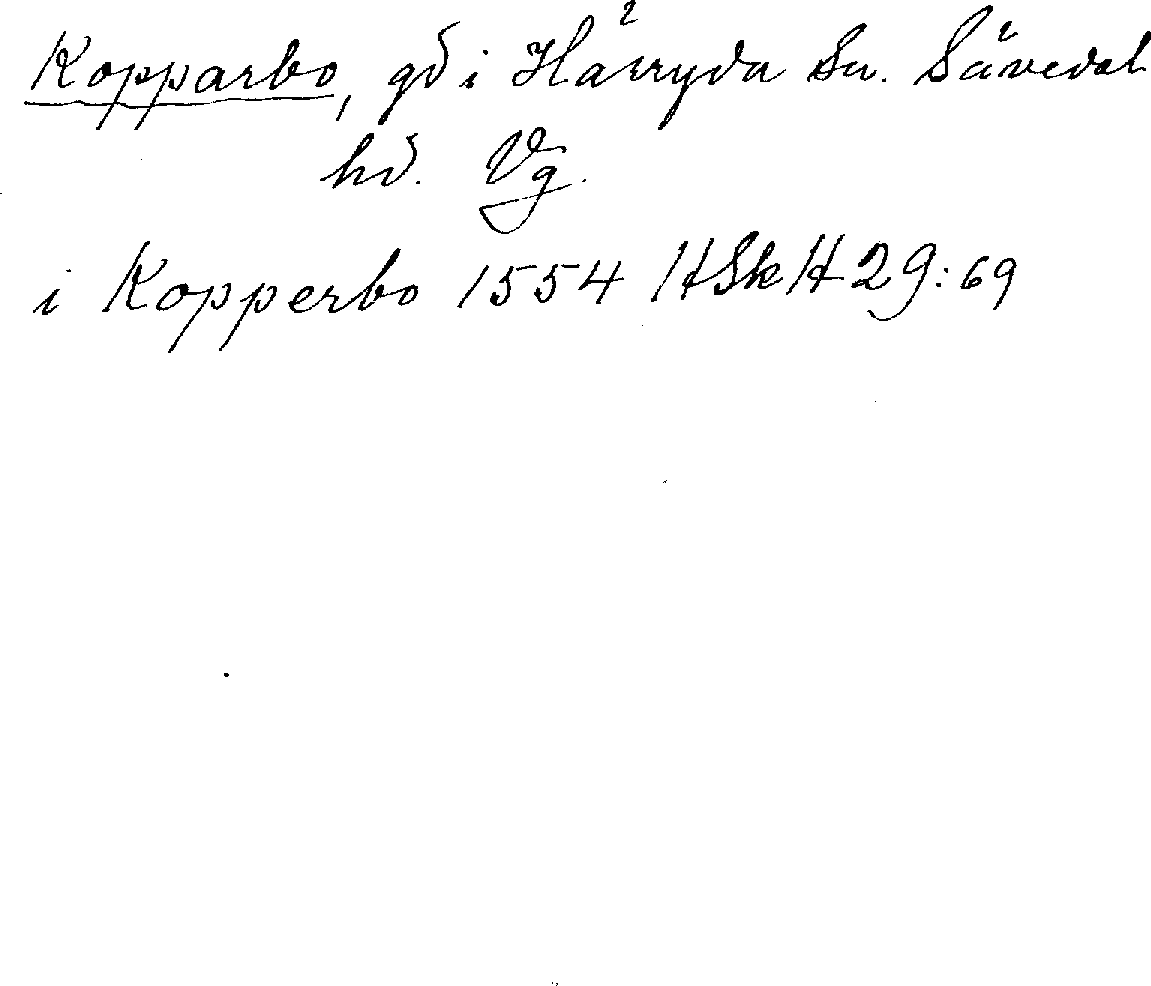 Kopparbo, gd i Härryda Sn. Sävedal
hd. Vg.
i Kopperbo 1554 HSkH 29:69